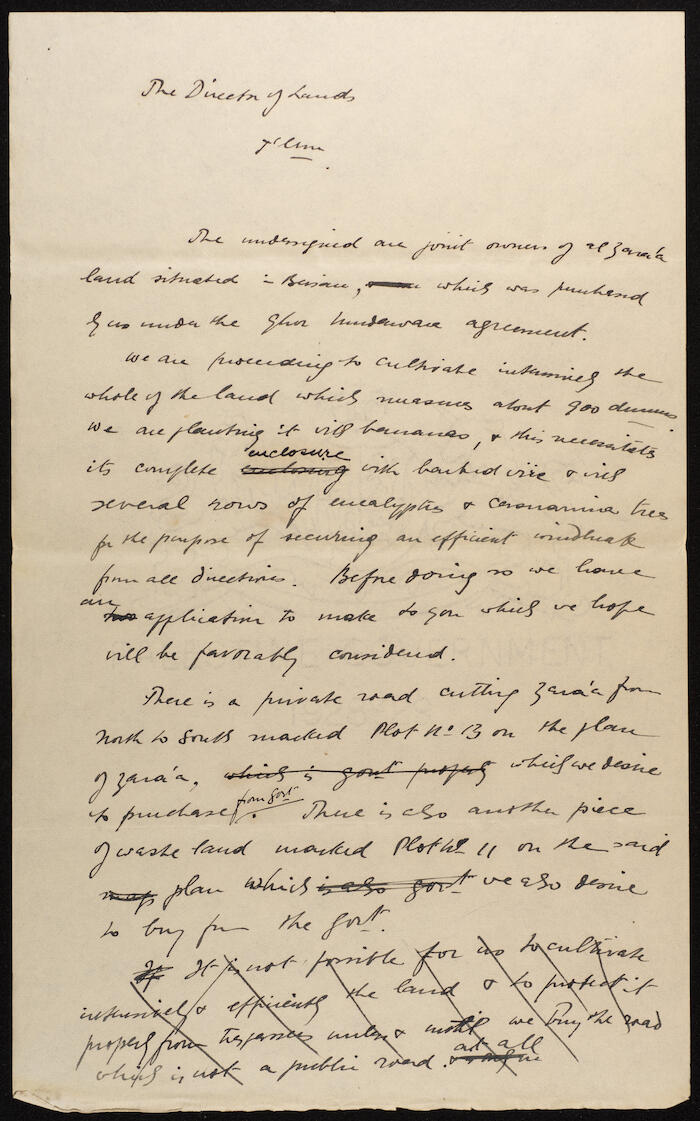 The Director of Lands
The undersigned are joint owners of al Zara'a
land situated in Beisan, which was purchased
by us under the Ghor Mudawara agreement.
We are proceeding to cultivate intensively the
whole of the land which measures about 900 dunums.
We are planting it with bananas, & this necessitates
its complete enclosing enclosure with barbed wire & with
several rows of eucalyptus & casuarina trees
for the purpose of securing an efficient windbreak
from all directions. Before doing so we have
an application to make to you which we hope
will be favorably considered.
There is a private road cutting Zara'a from
North to South marked Plot No 13 on the plan
of Zara'a, which is Govt property which we desire
to purchase from Govt. There is also another piece
of waste land marked Plot No 11 on the said
map plan which is also Govt we also desire
to buy from the Govt.
If It is not possible for us to cultivate
intensively & efficiently the land & to protect it
properly from trespassers unless & until we buy the road
which is not a public road at all